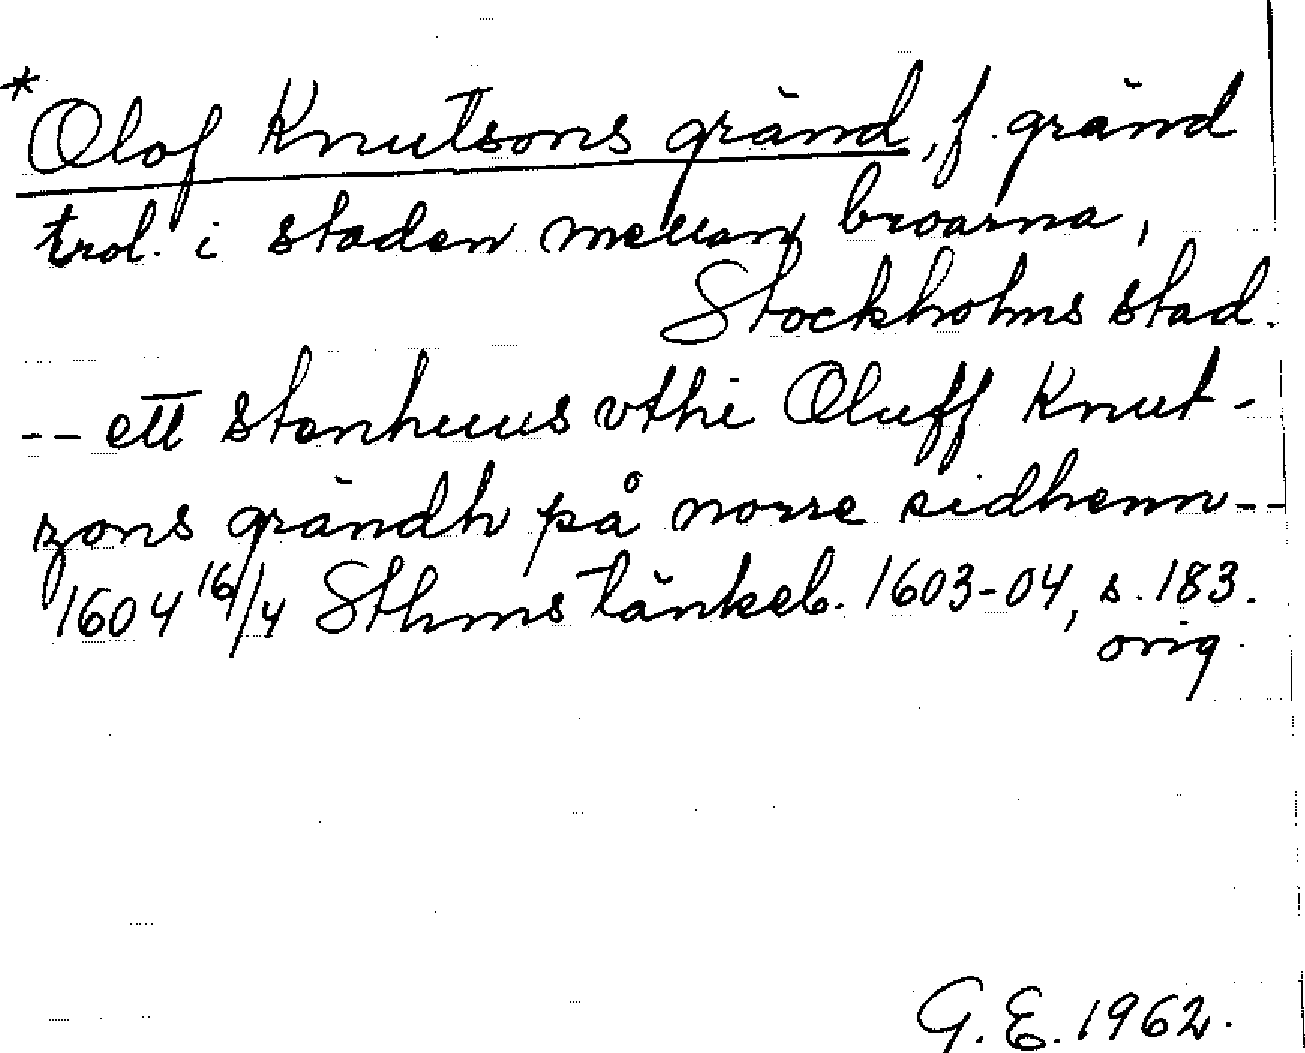 * Olof Knutsons gränd, f. gränd
trol. i staden mellan broarna,
Stockholms stad.
-- ett stenhuus vthi Oluff Knut-
zons grändh på norre sidhenn--
1604 16/4 Sthms tänkeb. 1603-04, s. 183.
orig.
G. E. 1962.